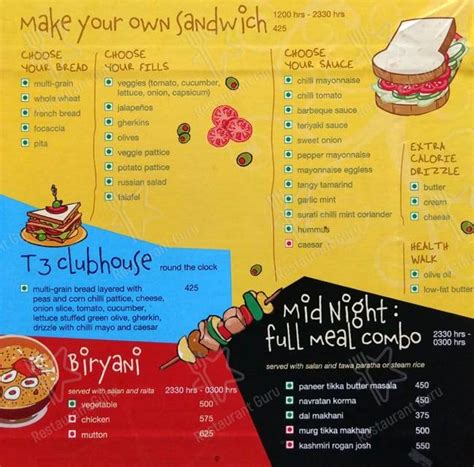 make your own sandwich 1200 hrs - 2330 hrs
425
CHOOSE
YOUR BREAD
multi-grain
whole wheat
french bread
focaccia
pita
CHOOSE
YOUR FILLS
veggies (tomato, cucumber,
lettuce, onion, capsicum)
jalapeños
gherkins
olives
veggie pattice
potato pattice
russian salad
falafel
CHOOSE
YOUR SAUCE
chilli mayonnaise
chilli tomato
barbeque sauce
teriyaki sauce
sweet onion
pepper mayonnaise
mayonnaise eggless
tangy tamarind
garlic mint
surati chilli mint coriander
hummus
caesar
EXTRA
CALORIE
DRIZZLE
butter
cream
cheese
HEALTH
WALK
olive oil
low-fat butter
T3 clubhouse round the clock
multi-grain bread layered with 425
peas and corn chilli pattice, cheese,
onion slice, tomato, cucumber,
lettuce stuffed green olive, gherkin,
drizzle with chilli mayo and caesar
Biryani
served with salan and raita 2330 hrs - 0300 hrs
vegetable 500
chicken 575
mutton 625
Mid Night:
full meal combo
2330 hrs
0300 hrs
served with salan and tawa paratha or steam rice
paneer tikka butter masala 450
navratan korma 450
dal makhani 375
murg tikka makhani 500
kashmiri rogan josh 550
Restaurant Guru